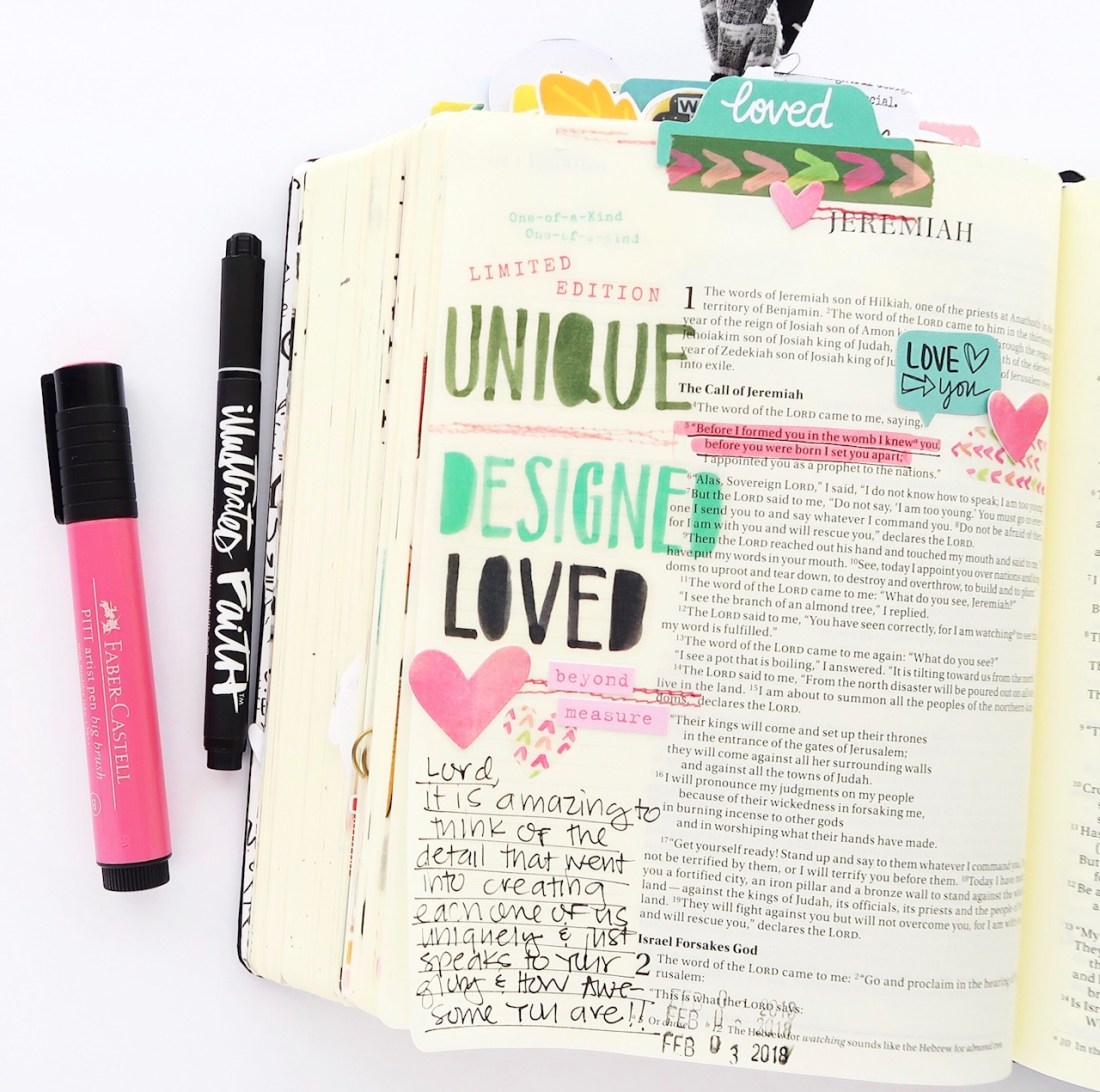 loved
W
cial.
One-of-a-Kind
One-of-a-kind
LIMITED
EDITION
UNIQUE
DESIGNED
LOVED
beyond
measure
Lord,
It is amazing to
think of the
detail that went
into creating
each one of us
uniquely & just
speaks to your
glory & How Awe-
some You are!!
JEREMIAH
1 The words of Jeremiah son of Hilkiah, one of the priests at Anathoth in the
territory of Benjamin. 2The word of the LORD came to him in the thirteenth
year of the reign of Josiah son of Amon
Jehoiakim son of Josiah king of Judah,
year of Zedekiah son of Josiah king of
into exile.
through the reign
of Jerusalem
LOVE
you
The Call of Jeremiah
4The word of the LORD came to me, saying,
5“Before I formed you in the womb I knewa you,
before you were born I set you apart;
I appointed you as a prophet to the nations.”
6“Alas, Sovereign LORD,” I said, “I do not know how to speak; I am too young.”
7But the LORD said to me, “Do not say, ‘I am too young.’ You must go to
one I send you to and say whatever I command you. 8Do not be afraid of
for I am with you and will rescue you,” declares the LORD.
9Then the LORD reached out his hand and touched my mouth and said to me,
have put my words in your mouth. 10See, today I appoint you over nations and
doms to uproot and tear down, to destroy and overthrow, to build and to plant.”
11The word of the LORD came to me: “What do you see, Jeremiah?”
“I see the branch of an almond tree,” I replied.
12The LORD said to me, “You have seen correctly, for I am watchingb to see
my word is fulfilled.”
13The word of the LORD came to me again: “What do you see?”
“I see a pot that is boiling,” I answered. “It is tilting toward us from the north.”
14The LORD said to me, “From the north disaster will be poured out on all
live in the land. 15I am about to summon all the peoples of the northern
doms,” declares the LORD.
“Their kings will come and set up their thrones
in the entrance of the gates of Jerusalem;
they will come against all her surrounding walls
and against all the towns of Judah.
16I will pronounce my judgments on my people
because of their wickedness in forsaking me,
in burning incense to other gods
and in worshiping what their hands have made.
17“Get yourself ready! Stand up and say to them whatever I command you.
not be terrified by them, or I will terrify you before them. 18Today I have
you a fortified city, an iron pillar and a bronze wall to stand against the
land—against the kings of Judah, its officials, its priests and the people of
land. 19They will fight against you but will not overcome you, for I am with
and will rescue you,” declares the LORD.
Israel Forsakes God
2 The word of the LORD came to me: 2“Go and proclaim in the hearing of
rusalem:
“This is what the LORD says:
b 12 The Hebrew for watching sounds like the Hebrew for almond tree.
FEB 2018
FEB 2018
FEB 03 2018
illustrated FAITH™
FABER-CASTELL
PITT artist pen big brush